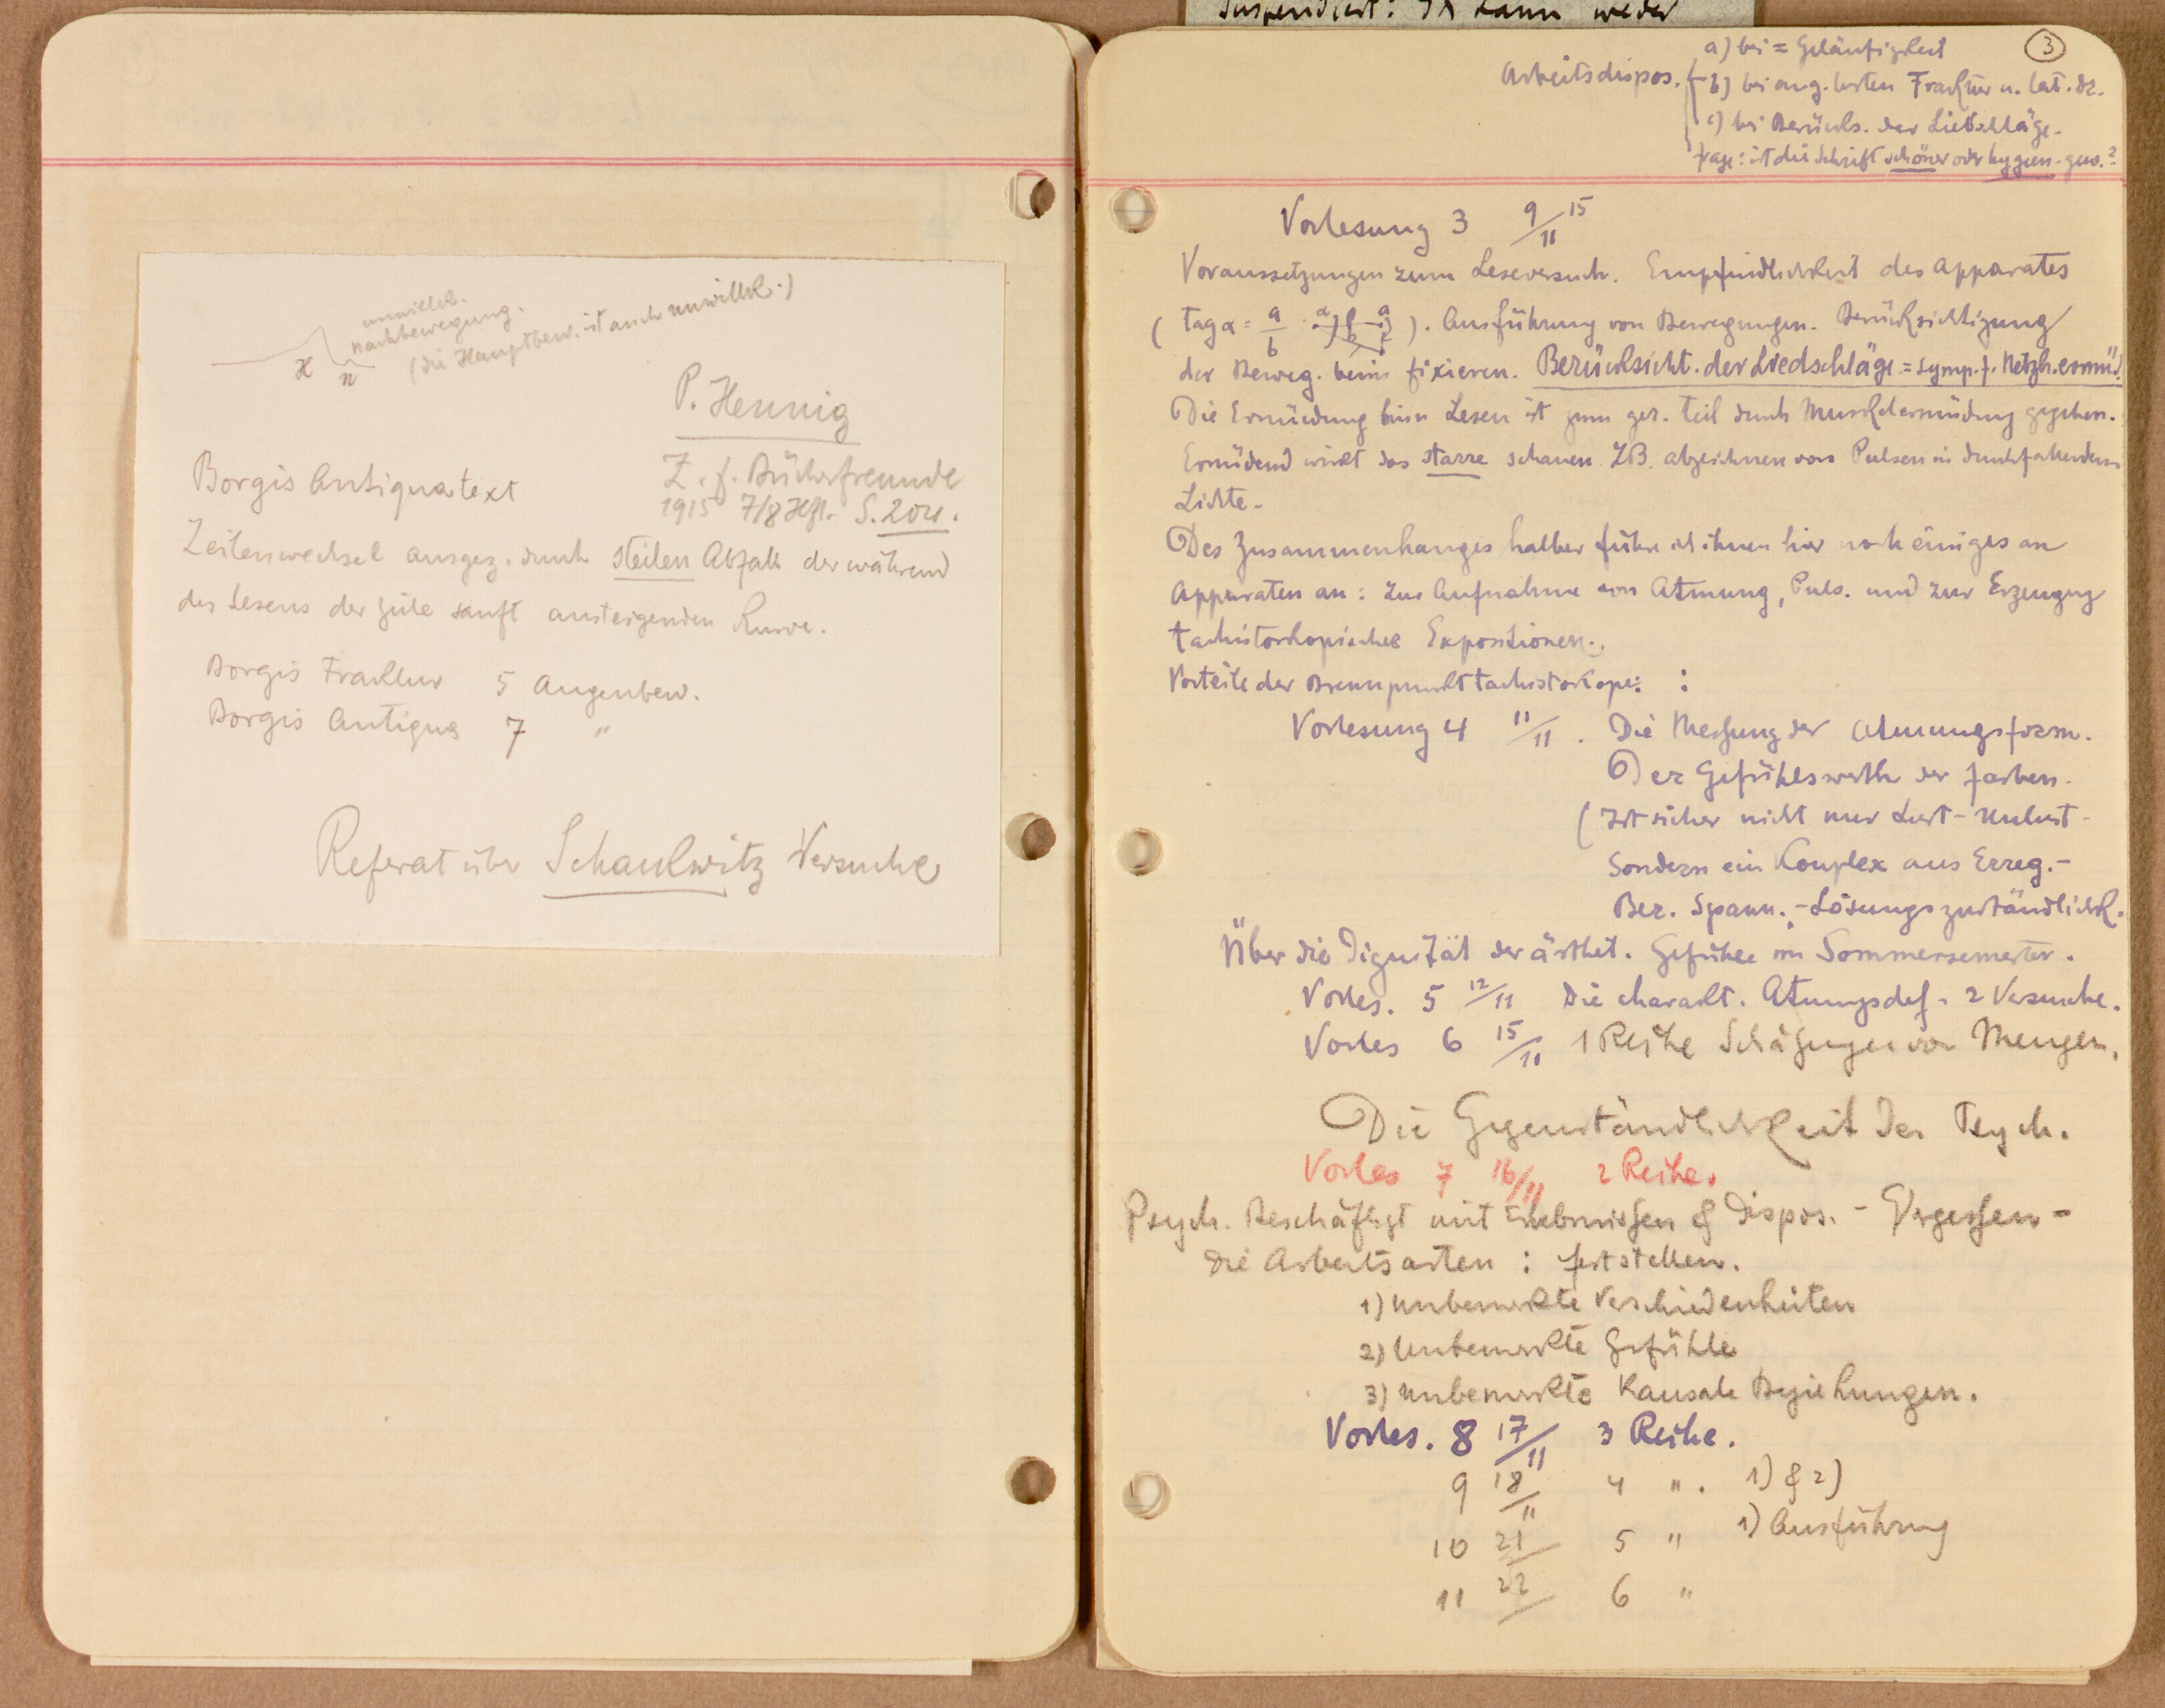 unwillk.
nachbewegung.
(die Hauptbew. ist auch unwillk.)
H n
P. Hennig
Borgis Antiquatext
Z. f. Bücherfreunde
1915 7/8 Hft. S.
Zeilenwechsel ausgez. durch steilen Abfall der während
des Lesens der Zeile sanft ansteigenden Kurve.
Borgis Fraktur 5 Augenbew.
Borgis Antiqua 7 "
Referat über Schackwitz Versuche
suspendiert: Ich kann weder
3
a) bei = Geläufigkeit
Arbeitsdispos. b) bei ang. besten Fraktur u. lat. dr.
c) bei Berücks. der Lidschläge.
Frage: ist die Schrift schöner oder hygien. gew.?
Vorlesung 3 9/11 15
Voraussetzungen zum Leseversuch. Empfindlichkeit des Apparates
(tag α = a/b). Ausführung von Bewegungen. Berücksichtigung
der Beweg. beim fixieren. Berücksicht. der Liedschläge = symp. f. Netzh. ermüd.
Die Ermüdung beim Lesen ist zum ger. Teil durch Muskelermüdung gegeben.
Ermüdend wirkt das starre schauen ZB. abzeichnen von Pulsen in durchfallendem
Lichte.
Des Zusammenhanges halber führe ich ihnen hier noch einiges an
Apparaten an: Zur Aufnahme von Atmung, Puls. und zur Erzeugung
tachistoskopischer Expositionen.
Vorteile der Brennpunkttachistoskope: :
Vorlesung 4 11/11. Die Messung der Atmungsform.
Der Gefühlswerth der Farben.
(Ist sicher nicht nur Lust-Unlust-
Sondern ein Komplex aus Erreg.-
Ber. Spann.-Lösungszuständlichk.
Über die Dignität der ästhet. Gefühle im Sommersemester.
Vorles. 5 12/11 Die charakt. Atmungsdef. 2 Versuche.
Vorles 6 15/11 1 Reihe Schätzungen von Mengen.
Die Gegenständlichkeit der Psych.
Vorles 7 16/11 2 Reihe.
Psych. Beschäftigt mit Erlebnissen & Dispos. - Vergessen -
Die Arbeitsarten: feststellen.
1) unbemerkte Verschiedenheiten
2) Unbemerkte Gefühle
3) unbemerkte Kausale Beziehungen.
Vorles. 8 17/11 3 Reihe.
9 18/11 4 ". 1) & 2)
10 21/ 5 " 1) Ausführung
11 22/ 6 "